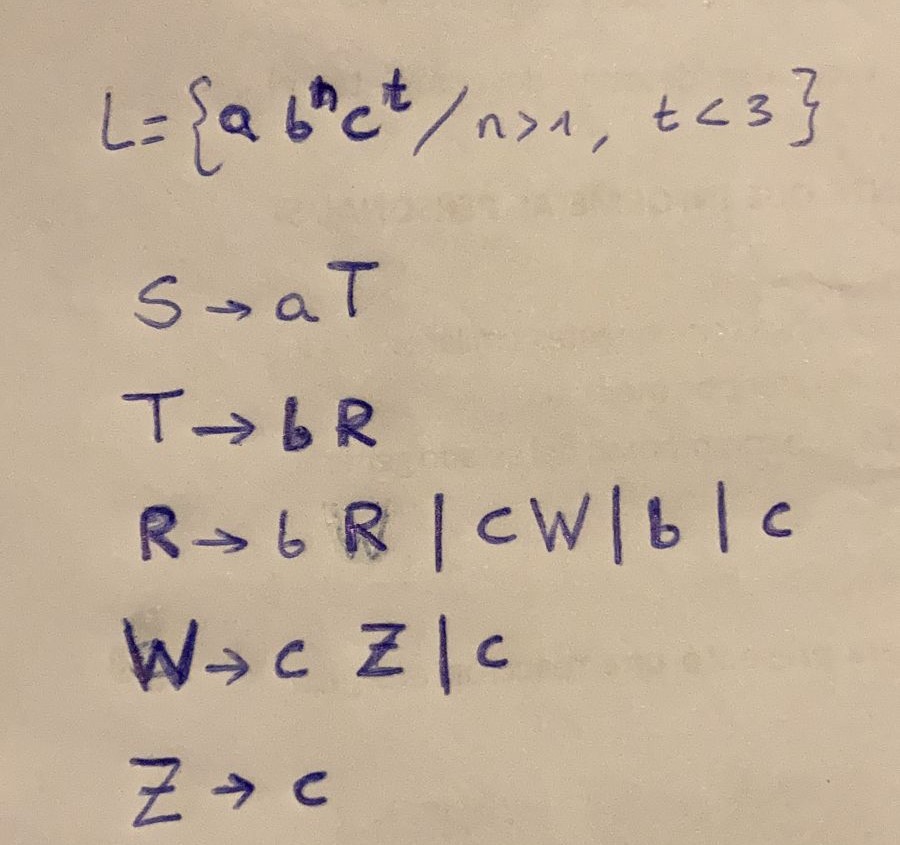 L={a bⁿcᵗ/n>1, t<3}
S→aT
T→bR
R→bR|cW|b|c
W→cZ|c
Z→c